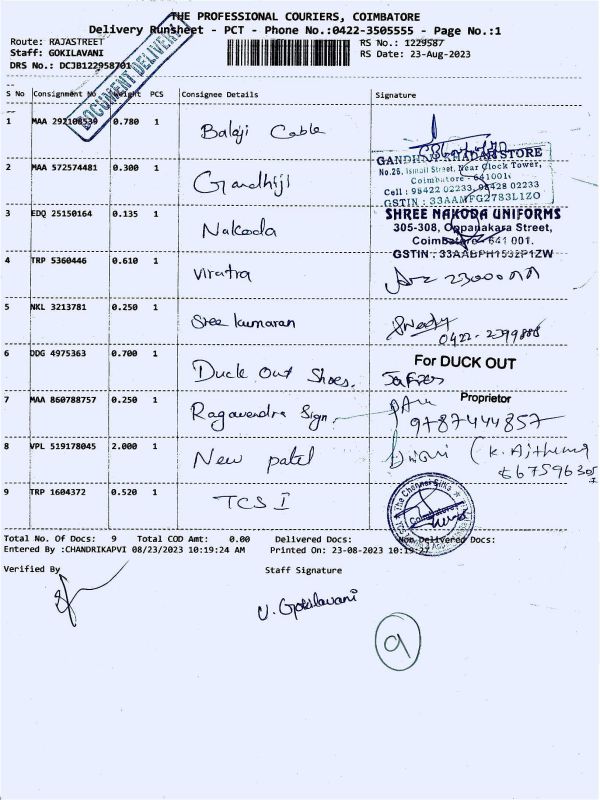 THE PROFESSIONAL COURIERS, COIMBATORE
Delivery Runsheet - PCT - Phone No.:0422-3505555 - Page No.:1
Route: RAJASTREET RS No.: 1229587
Staff: GOKILAVANI RS Date: 23-Aug-2023
DRS No.: DCJB122958701
DOCUMENT DELIVERY
S No Consignment No Weight PCS Consignee Details Signature
1 MAA 292108539 0.780 1 Balaji Cable
2 MAA 572574481 0.300 1 Gandhiji
GANDHIJI KHADAR STORE
No.26, Ismail Street, Near Clock Tower,
Coimbatore - 641001
Cell : 98422 02233, 98428 02233
GSTIN : 33AAMFG2783L1ZO
3 EDQ 25150164 0.135 1 Nakoda
SHREE NAKODA UNIFORMS
305-308, Oppanakara Street,
Coimbatore - 641 001.
GSTIN : 33AABPH1532P1ZW
4 TRP 5360446 0.610 1 Viratra
5 NKL 3213781 0.250 1 Sree kumaran
0422-2399888
6 DDG 4975363 0.700 1 Duck Out Shoes.
For DUCK OUT
Proprietor
7 MAA 860788757 0.250 1 Ragavendra Sign.
9787444857
8 VPL 519178045 2.000 1 New patel
9 TRP 1604372 0.520 1 TCS I
The Chennai Silks
Coimbatore
Total No. Of Docs: 9 Total COD Amt: 0.00 Delivered Docs: Non Delivered Docs:
Entered By :CHANDRIKAPVI 08/23/2023 10:19:24 AM Printed On: 23-08-2023 10:19:27
Verified By Staff Signature
V. Gokilavani
9